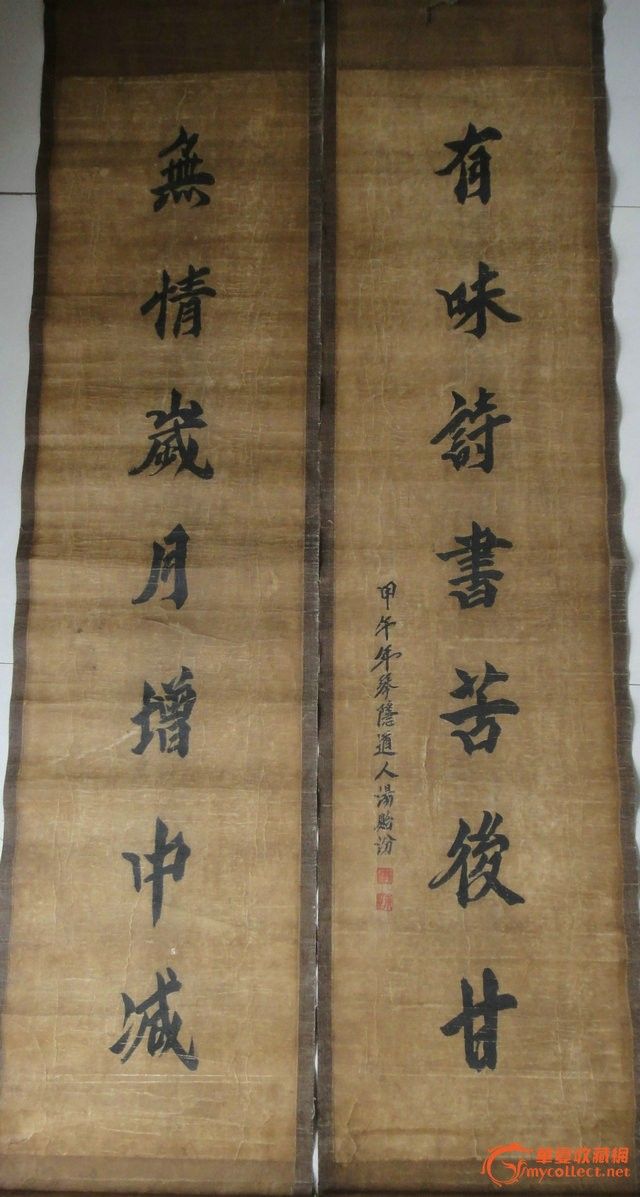 無情歲月增中減
有味詩書苦後甘
甲午年琴隱道人湯貽汾
華夏收藏網
mycollect.net